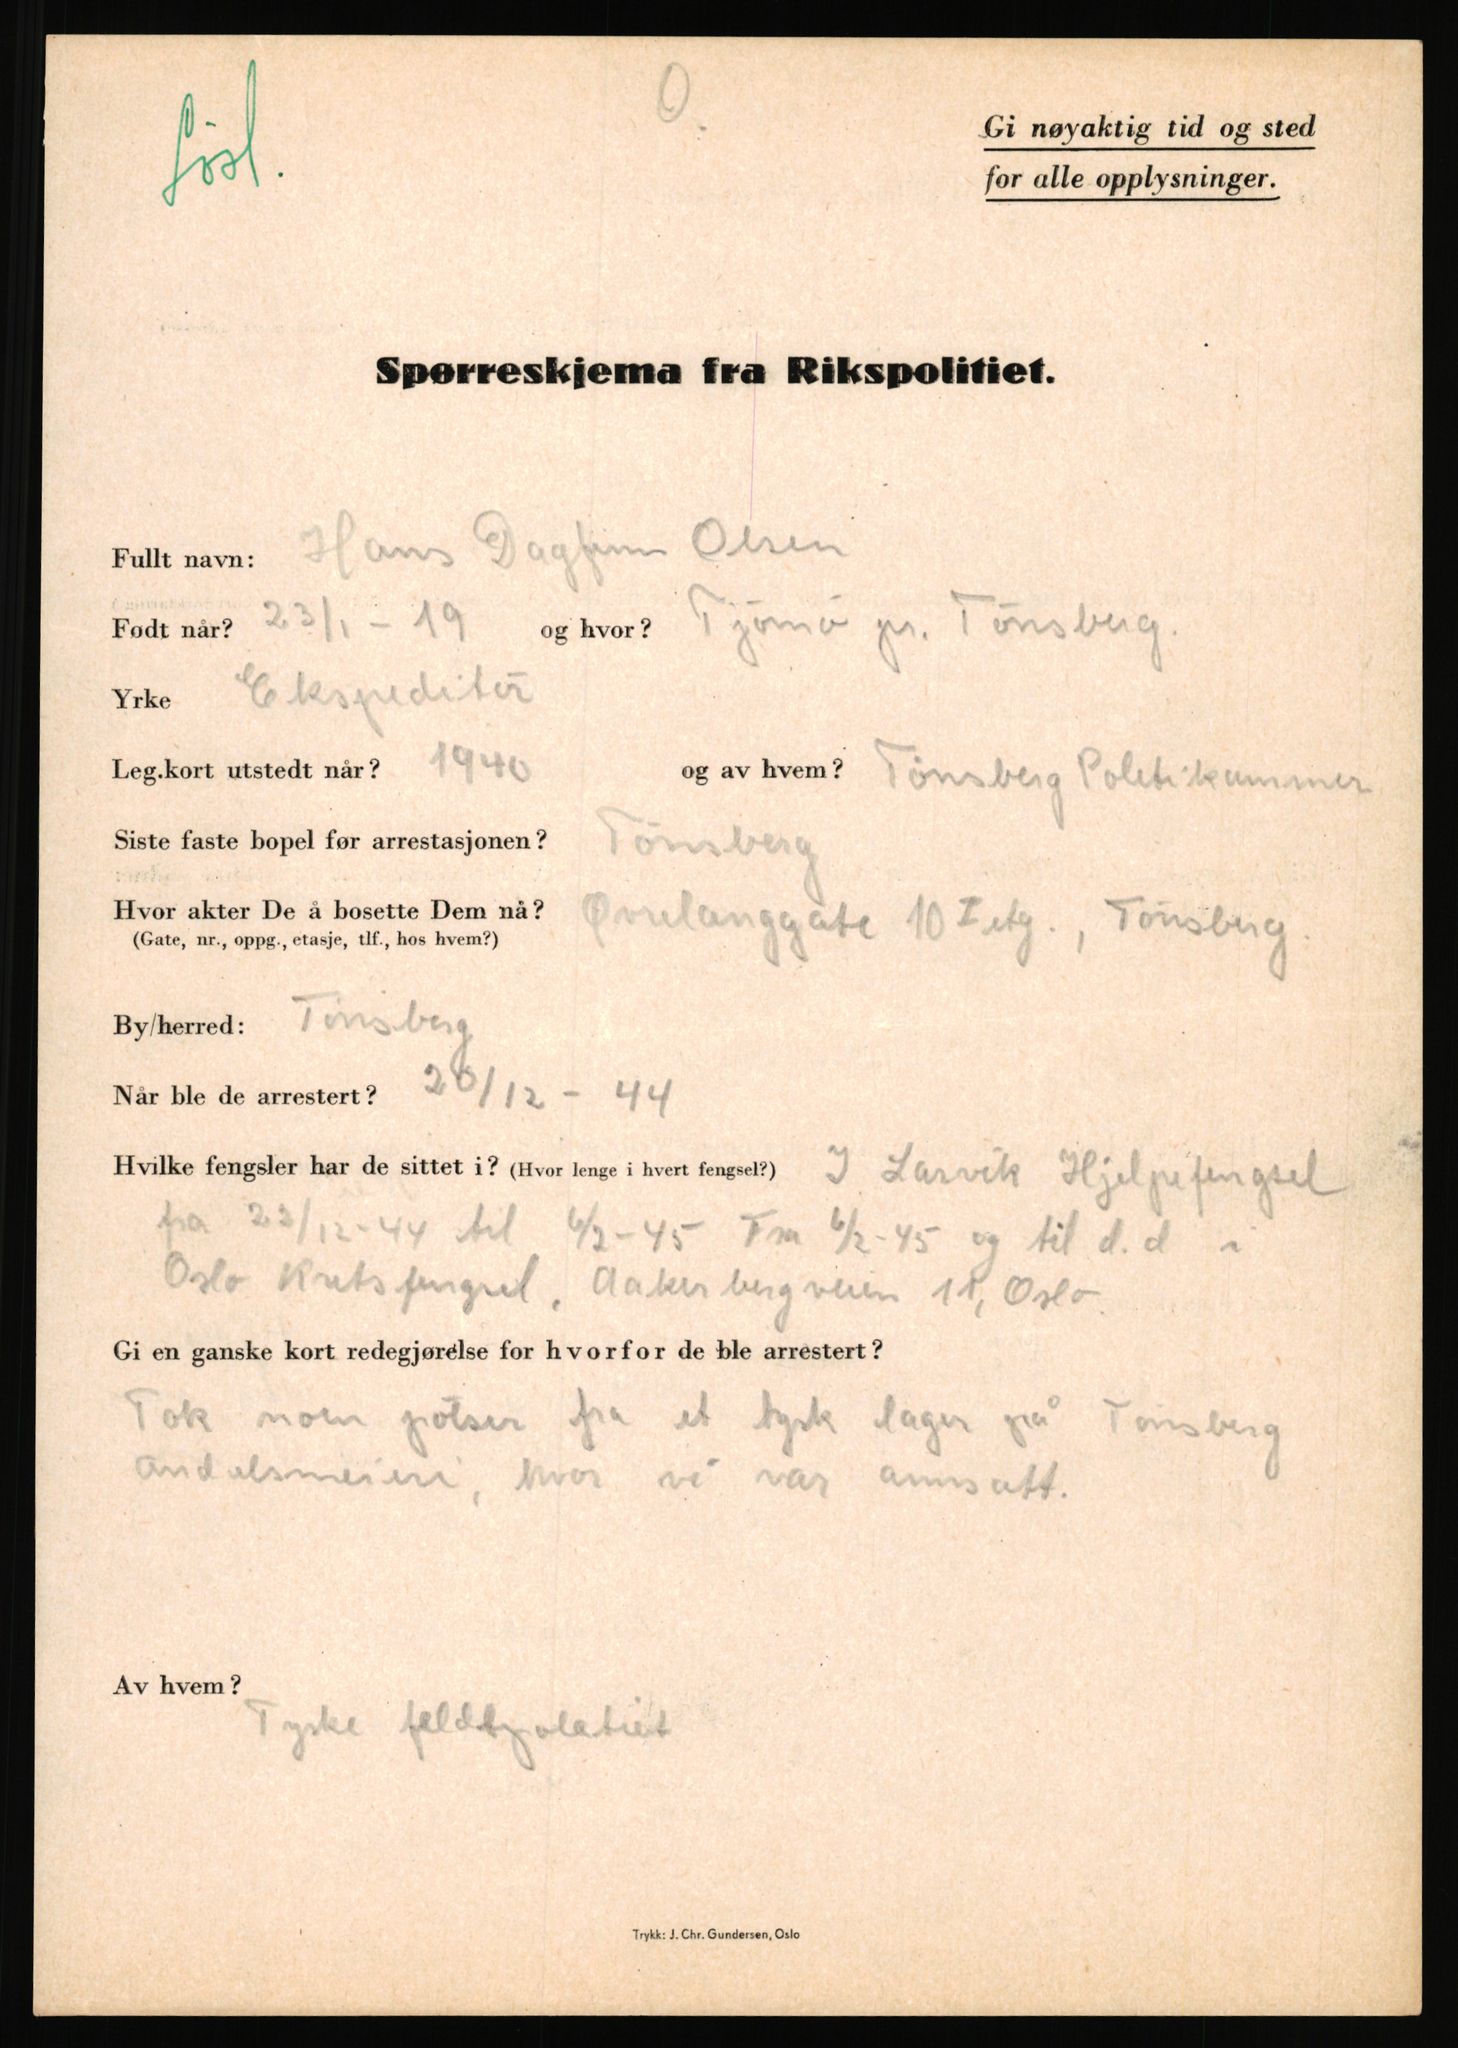 Lösl.
O.
Gi nøyaktig tid og sted
for alle opplysninger.
Spørreskjema fra Rikspolitiet.
Fullt navn: Hans Dagfinn Olsen
Født når? 23/1 - 19 og hvor? Tjömö pr. Tönsberg.
Yrke Ekspeditör
Leg.kort utstedt når? 1940 og av hvem? Tönsberg Politikammer
Siste faste bopel før arrestasjonen? Tönsberg
Hvor akter De å bosette Dem nå? Øvrelanggate 10 I etg., Tönsberg.
(Gate, nr., oppg., etasje, tlf., hos hvem?)
By/herred: Tönsberg
Når ble de arrestert? 20/12 - 44
Hvilke fengsler har de sittet i? (Hvor lenge i hvert fengsel?) I Larvik Hjelpefengsel
fra 23/12-44 til 6/2-45 Fra 6/2-45 og til d.d i
Oslo Kretsfengsel, Aakerbergveien 11, Oslo.
Gi en ganske kort redegjørelse for hvorfor de ble arrestert?
Tok noen pölser fra et tysk lager på Tönsberg
Andelsmeieri, hvor vi var annsatt.
Av hvem?
Tyske feldtpolitiet
Trykk: J. Chr. Gundersen, Oslo